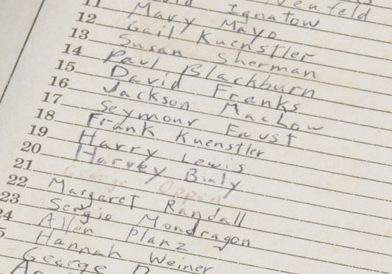 enfeld
11 Ignatow
12 Mary Mayo
13 Gail Kuenstler
14 Susan Sherman
15 Paul Blackburn
16 David Franks
17 Jackson MacLow
18 Seymour Faust
19 Frank Kuenstler
20 Harry Lewis
21 Harvey Bialy
George Oppen
22 Margaret Randall
23 Sergio Mondragon
24 Allen Planz
5 Hannah Weiner
George D